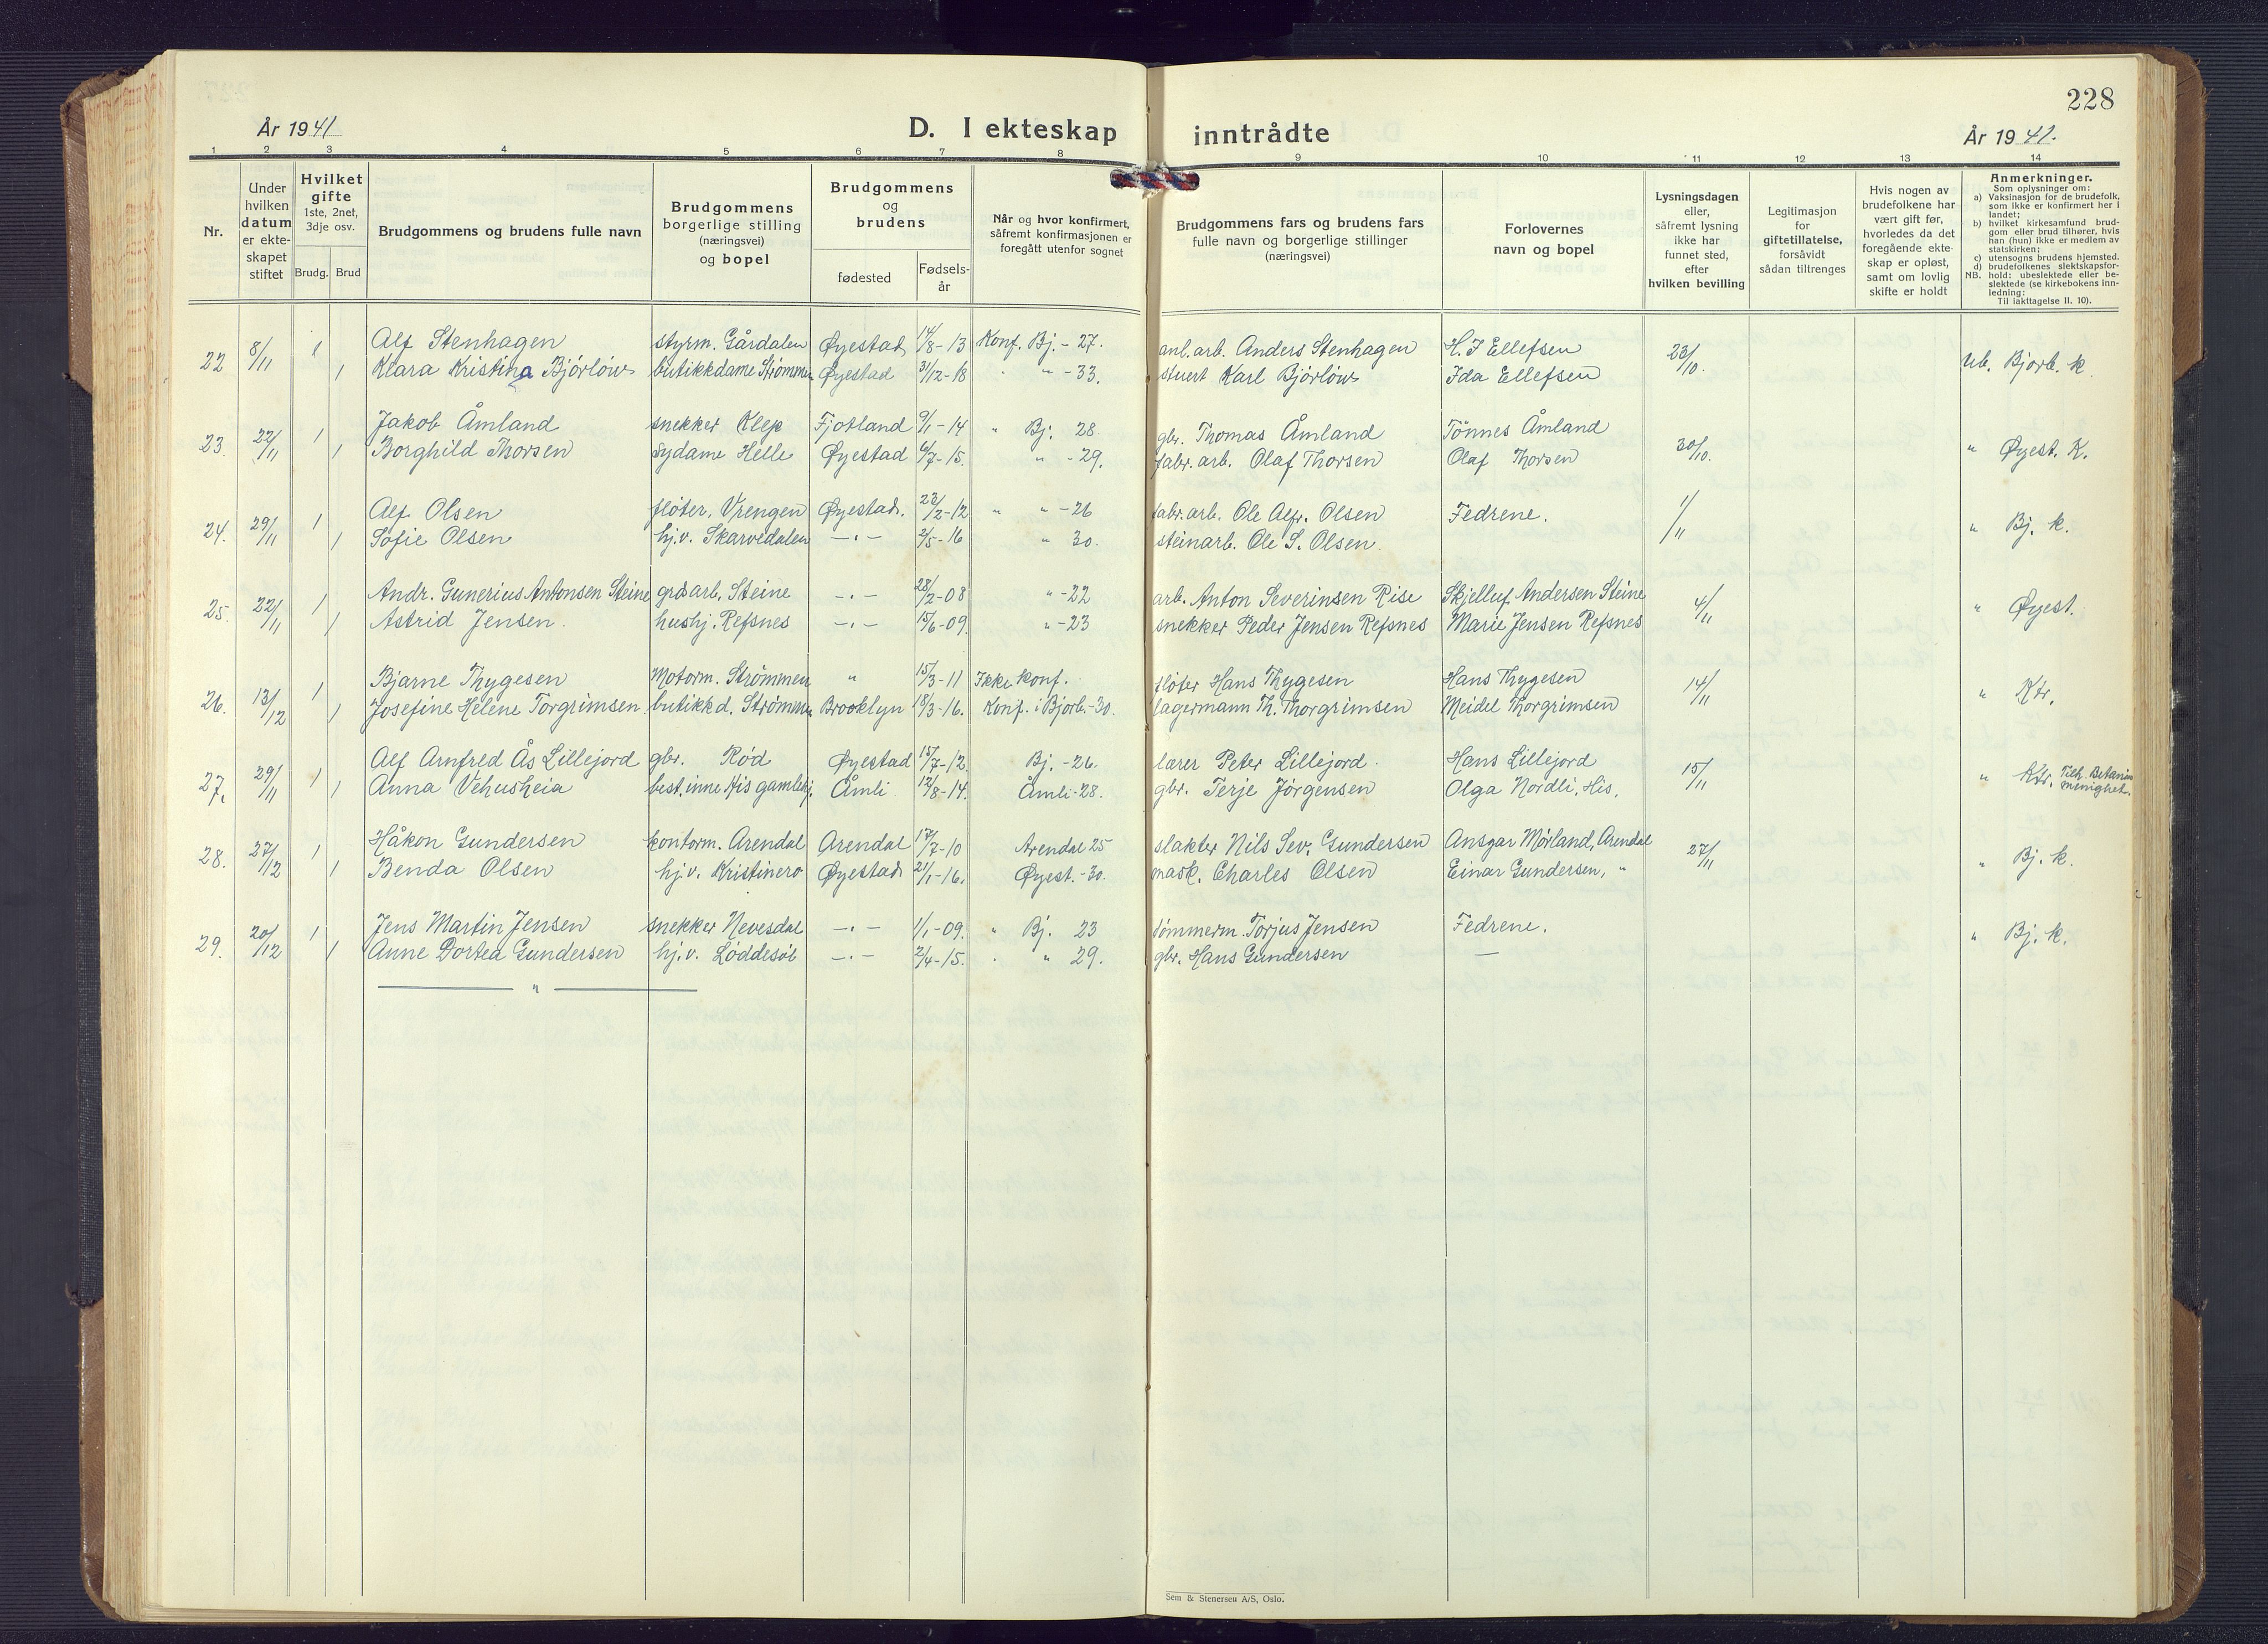 228
År 1941
D. I ekteskap inntrådte
År 1941.
1 2 3 4 5 6 7 8 9 10 11 12 13 14
Nr.
Under hvilken datum er ekte-skapet stiftet
Hvilket gifte 1ste, 2net, 3dje osv.
Brudg. Brud
Brudgommens og brudens fulle navn
Brudgommens borgerlige stilling (næringsvei) og bopel
Brudgommens og brudens
fødested
Fødsels-år
Når og hvor konfirmert, såfremt konfirmasjonen er foregått utenfor sognet
Brudgommens fars og brudens fars fulle navn og borgerlige stillinger (næringsvei)
Forlovernes navn og bopel
Lysningsdagen eller, såfremt lysning ikke har funnet sted, efter hvilken bevilling
Legitimasjon for giftetillatelse, forsåvidt sådan tiltrenges
Hvis nogen av brudefolkene har vært gift før, hvorledes da det foregående ekte-skap er opløst, samt om lovlig skifte er holdt
Anmerkninger.
Som oplysninger om:
a) Vaksinasjon for de brudefolk, som ikke er konfirmert her i landet;
b) hvilket kirkesamfund brud-gom eller brud tilhører, hvis han (hun) ikke er medlem av statskirken;
c) utensogns brudens hjemsted.
d) brudefolkenes slektskapsfor-hold: ubeslektede eller be-slektede (se kirkebokens inn-ledning:
NB. Til iakttagelse II. 10).
22 8/11 1 Alf Stenhagen styrm. Gårdalen Øyestad 14/8-13 Konf. Bj. - 27. anl.arb. Anders Stenhagen H. J Ellefsen 23/10. Ub. Bjorb. k.
1 Klara Kristina Bjørløw butikkdame Strømmen Øyestad 31/12-18 " " -33. stuert Karl Bjørløw Ida Ellefsen
23. 22/11 1 Jakob Åmland snekker Klep Fjotland 9/1-14 " Bj. 28. gbr. Thomas Åmland Tønnes Åmland 30/10. " Øyest. K.
1 Borghild Thorsen sydame Helle Øyestad 6/7-15. " -29. fabr.arb. Olaf Thorsen Olaf Thorsen
24. 29/11 1 Alf Olsen fløter, Vrengen Øyestad. 23/2-12 " " -26 fabr.arb. Ole Alfr. Olsen Fedrene. 1/11 " Bj. k.
1 Sofie Olsen hj.v. Skarvedalen -"- 2/5-16 " 30. steinarb. Ole S. Olsen.
25. 22/11 1 Andr. Gunerius Antonsen Steine grdsarb. Steine -"- 28/2-08 " -22 arb. Anton Severinsen Rise Skjelluf Andersen Steine 4/11 " Øyest.
1 Astrid Jensen. hushj. Refsnes -"- 15/6-09. " -23 snekker Peder Jensen Refsnes Marie Jensen Refsnes
26. 13/12 1 Bjarne Thygesen Motorm. Strømmen " 15/3-11 Ikke konf. fløter Hans Thygesen Hans Thygesen 14/11 " Ktr.
1 Josefine Helene Torgrimsen butikkd. Strømmen Brooklyn 18/3-16. Konf. i Bjorb.-30. lagermann Th. Thorgrimsen Meidel Thorgrimsen
27. 29/11 1 Alf Arnfred Ås Lillejord gbr. Rød Øyestad 15/7-12. Bj. -26. lærer Peter Lillejord. Hans Lillejord 15/11 " Ktr. Tilh. Betanien menighet.
1 Anna Vehusheia best.inne His gamlehj. Åmli 12/8-14. Åmli-28. gbr. Terje Jørgensen Olga Nordli, His.
28. 27/12 1 Håkon Gundersen kontorm. Arendal Arendal 17/7-10 Arendal 25 slakter Nils Sev. Gundersen Ansgar Mørland, Arendal 27/11 " Bj. k.
1 Benda Olsen hj.v. Kristinero Øyestad 21/1-16. Øyest.-30. mask. Charles Olsen Einar Gundersen, "
29. 20/12 1 Jens Martin Jensen snekker Nevesdal -"- 1/1-09. " Bj. 23 tømmerm. Torjus Jensen Fedrene. " Bj. k.
1 Anne Dortea Gundersen hj.v. Løddesøl -"- 2/4-15. " " 29. gbr. Hans Gundersen —
— " —
Sem & Stenersen A/S, Oslo.